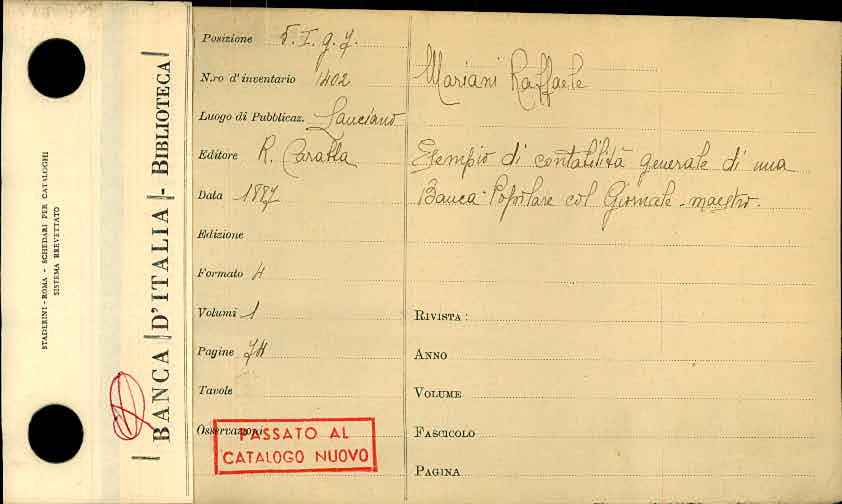 STADERINI - ROMA - SCHEDARI PER CATALOGHI
SISTEMA BREVETTATO
BANCA D'ITALIA - BIBLIOTECA
Posizione
N.ro d'inventario 1402
Luogo di Pubblicaz. Lanciano
Editore R. Carabba
Data 1887
Edizione
Formato 4
Volumi 1
Pagine
Tavole
Osservazioni
PASSATO AL
CATALOGO NUOVO
Mariani Raffaele
Esempio di contabilità generale di una
Banca Popolare col Giornale-maestro.
RIVISTA:
ANNO
VOLUME
FASCICOLO
PAGINA